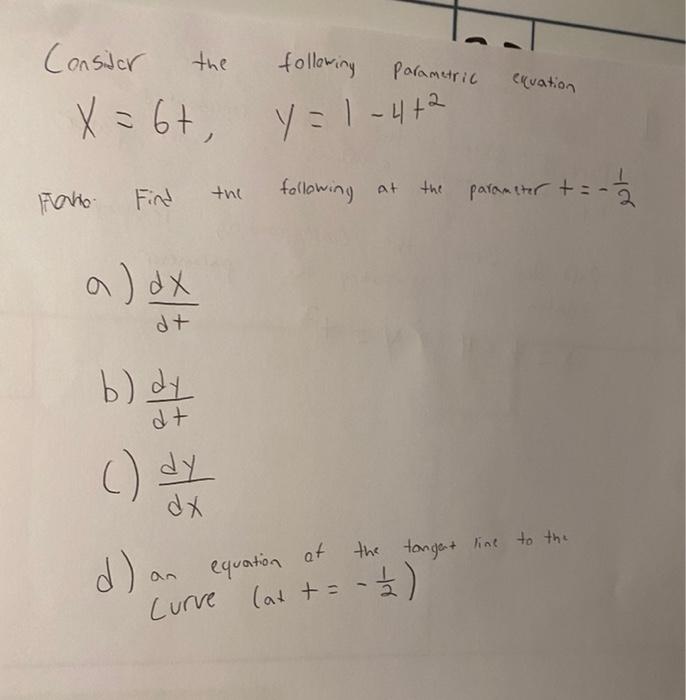 Consider the following parametric equation
X = 6t, y = 1 - 4t²
Find the following at the parameter t = -1/2
a) dx/dt
b) dy/dt
c) dy/dx
d) an equation of the tangent line to the
curve (at t = -1/2)